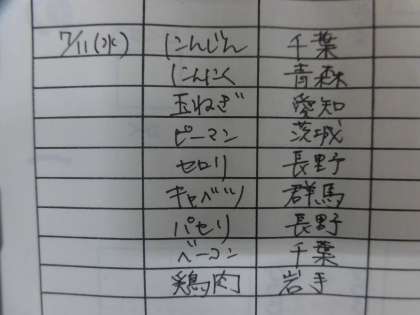 7/11(水) にんじん 千葉
にんにく 青森
玉ねぎ 愛知
ピーマン 茨城
セロリ 長野
キャベツ 群馬
パセリ 長野
ベーコン 千葉
鶏肉 岩手